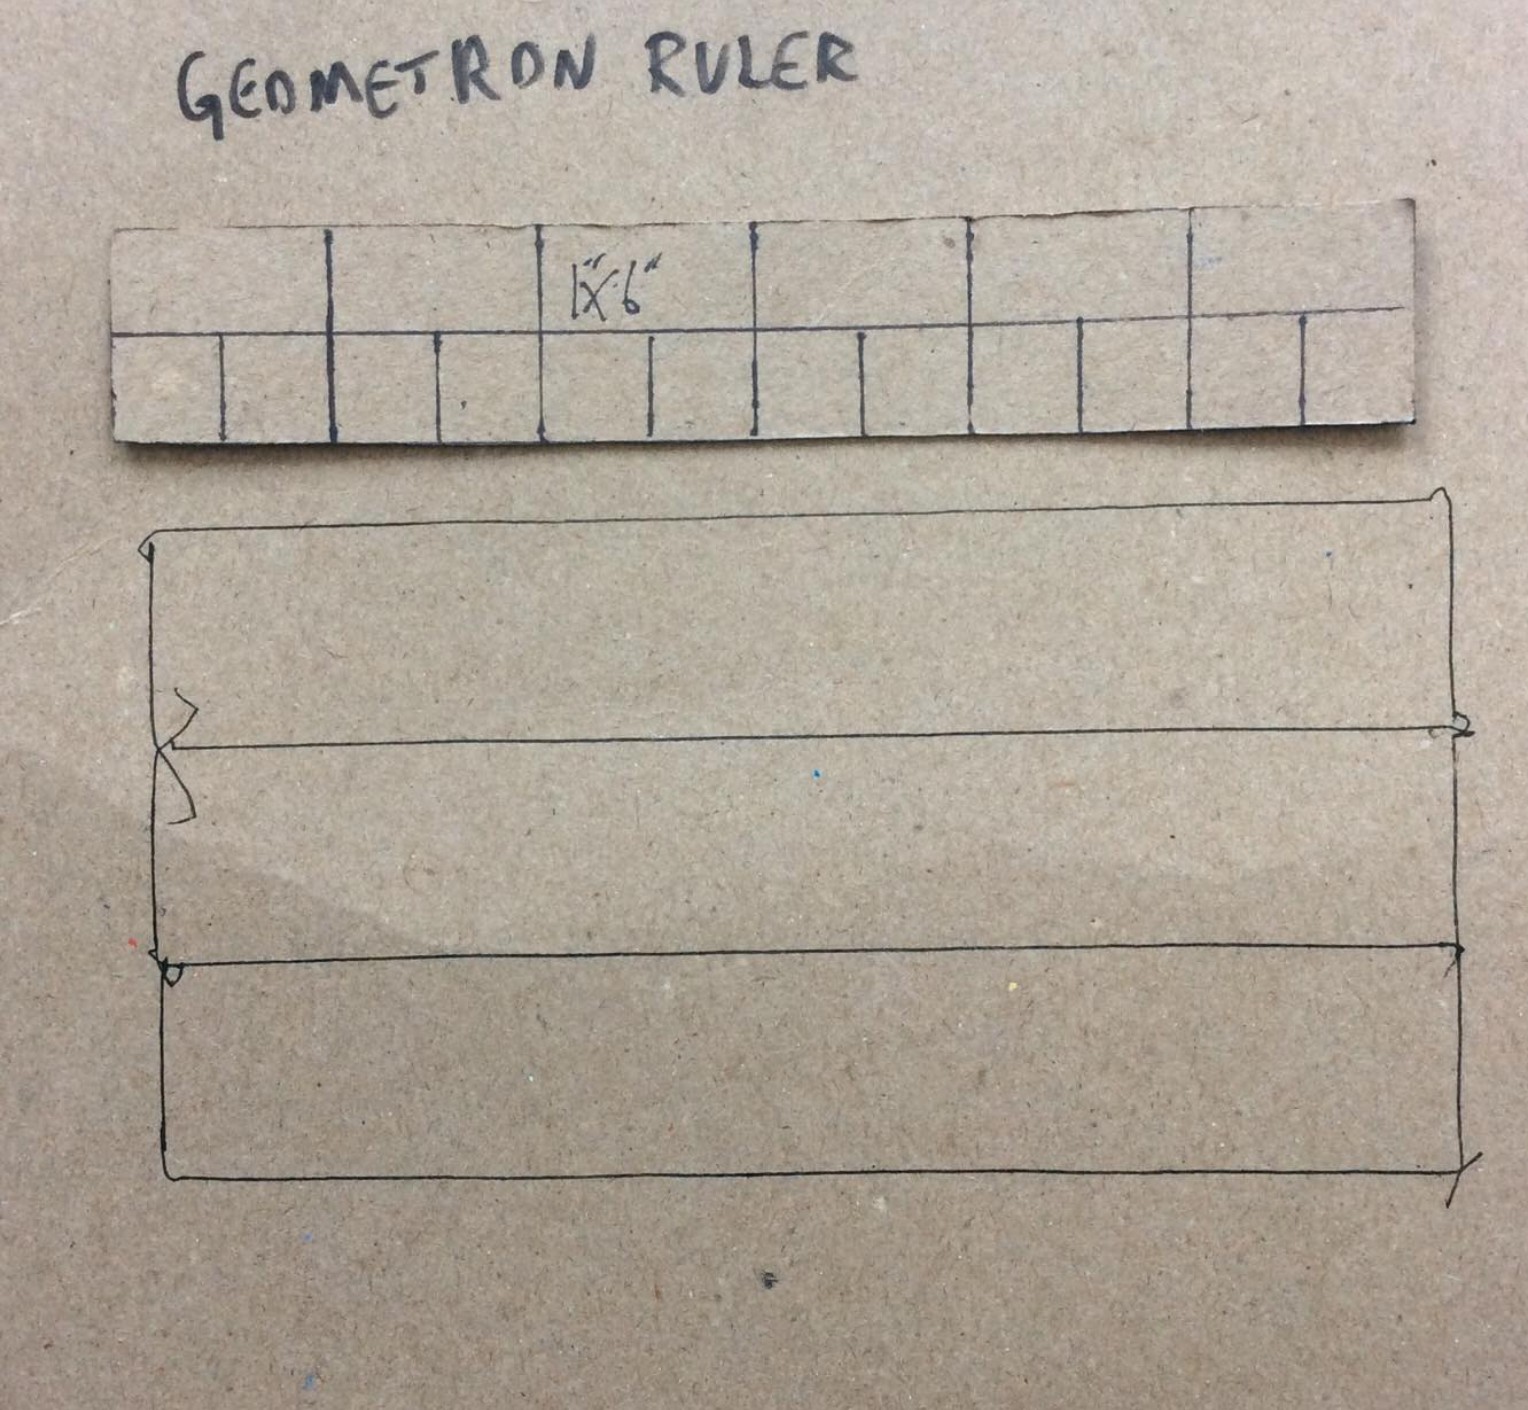 GEOMETRON RULER
1"X6"